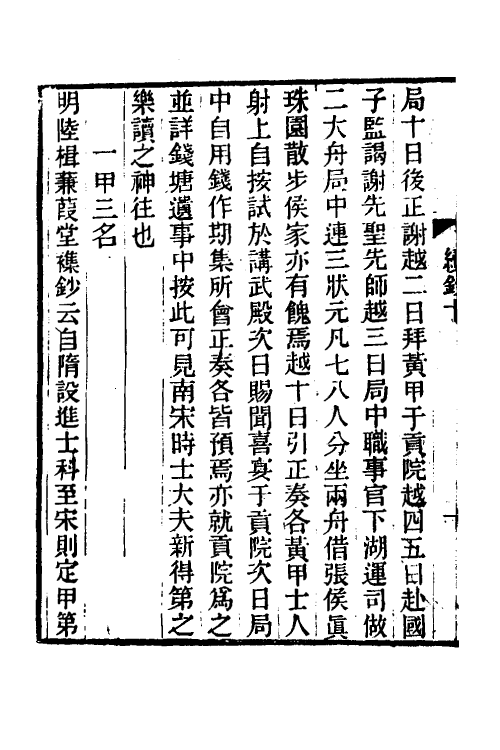 續鈔十
局十日後正謝越二日拜黃甲于貢院越四五日赴國
子監謁謝先聖先師越三日局中職事官下湖運司做
二大舟局中連三狀元凡七八人分坐兩舟借張侯眞
珠園散步侯家亦有餽焉越十日引正奏各黃甲士人
射上自按試於講武殿次日賜聞喜宴于貢院次日局
中自用錢作期集所會正奏各皆預焉亦就貢院爲之
並詳錢塘遺事中按此可見南宋時士大夫新得第之
樂讀之神往也
一甲三名
明陸楫蒹葭堂襍鈔云自隋設進士科至宋則定甲第